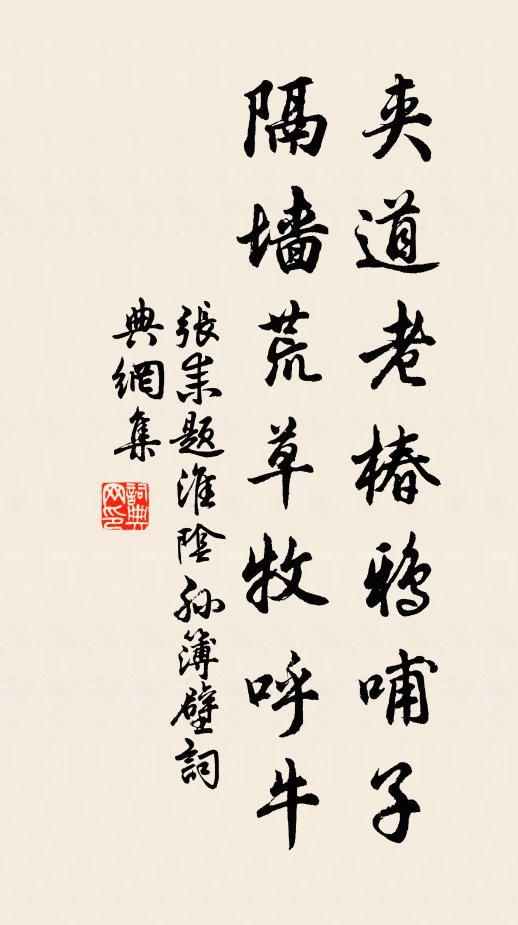 夹道老椿鸦哺子
隔墙荒草牧呼牛
張耒題淮陰孙簿壁詞
典網集
詞典
网印